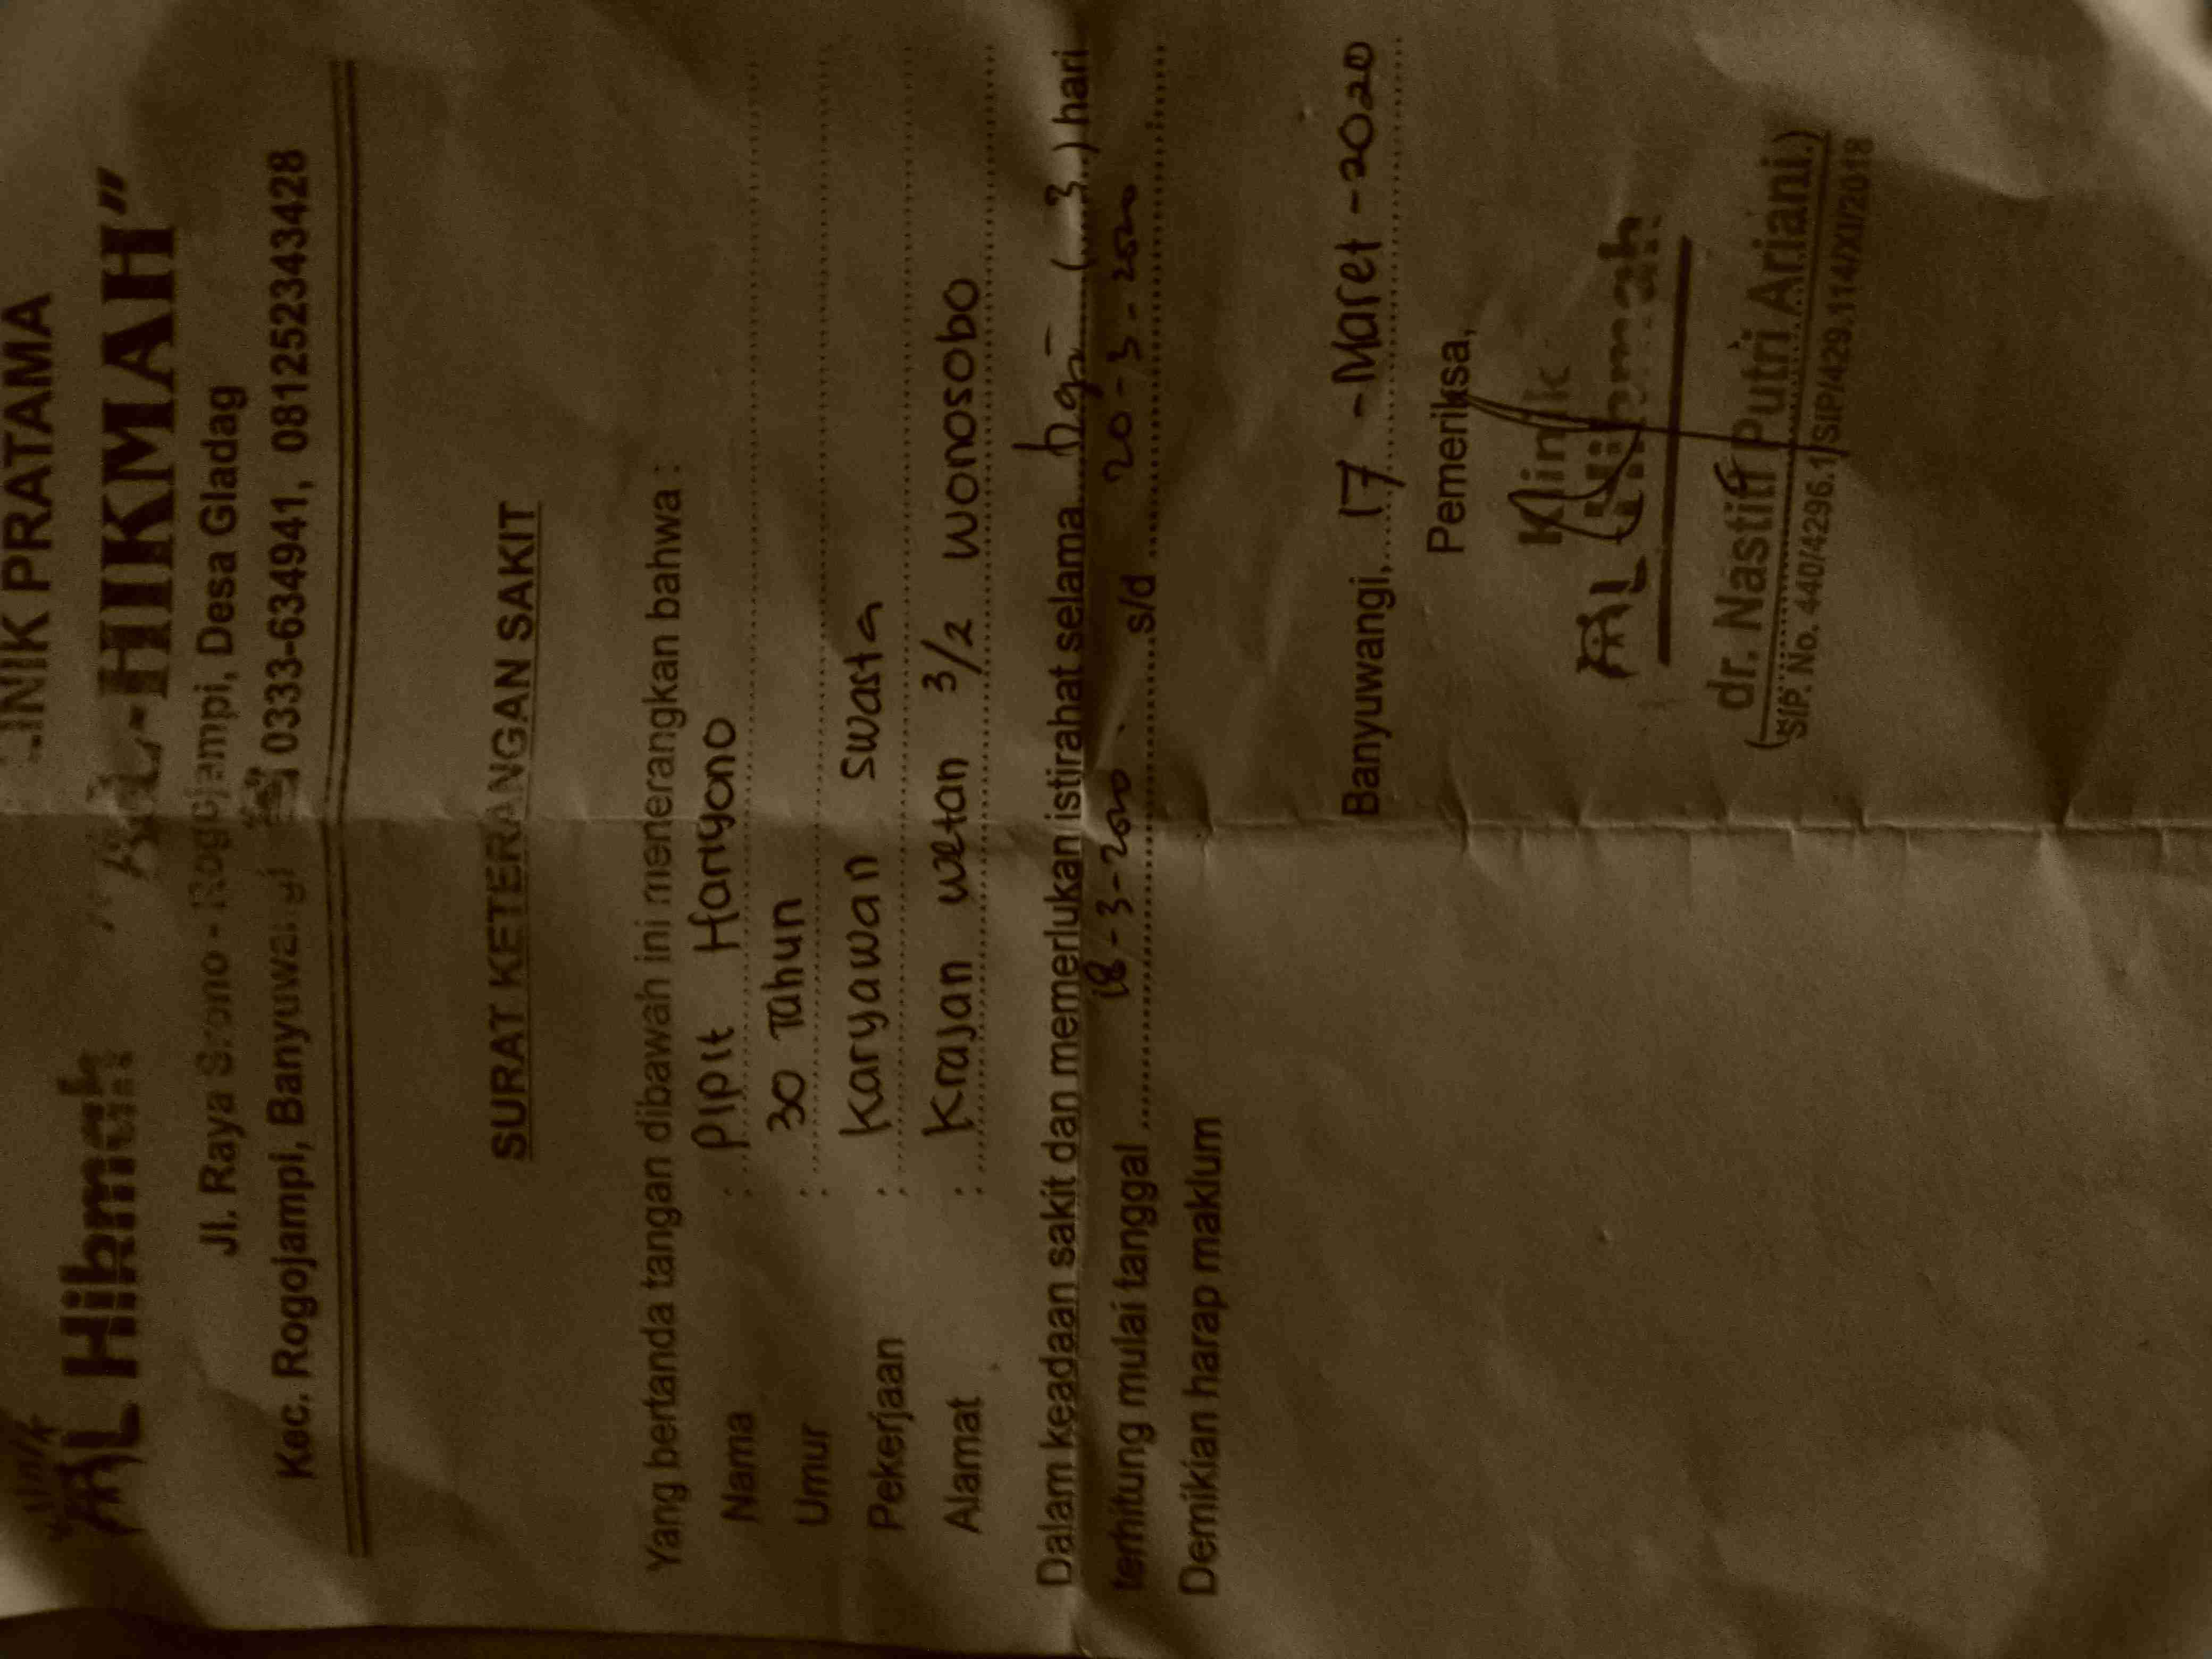 Klinik
AL Hikmah
KLINIK PRATAMA
"AL-HIKMAH"
Jl. Raya Srono - Rogojampi, Desa Gladag
Kec. Rogojampi, Banyuwangi 0333-634941, 081252343428
SURAT KETERANGAN SAKIT
Yang bertanda tangan dibawah ini menerangkan bahwa :
Nama : Pipit Hariyono
Umur : 30 Tahun
Pekerjaan : Karyawan Swasta
Alamat : Krajan wetan 3/2 Wonosobo
Dalam keadaan sakit dan memerlukan istirahat selama (3) hari
terhitung mulai tanggal 18-3-2020 s/d 20-3-2020
Demikian harap maklum
Banyuwangi, 17 - Maret - 2020
Pemeriksa,
Klinik
AL Hikmah
(dr. Nastiti Putri Ariani.)
SIP. No. 440/4296.1/SIP/429.114/XI/2018